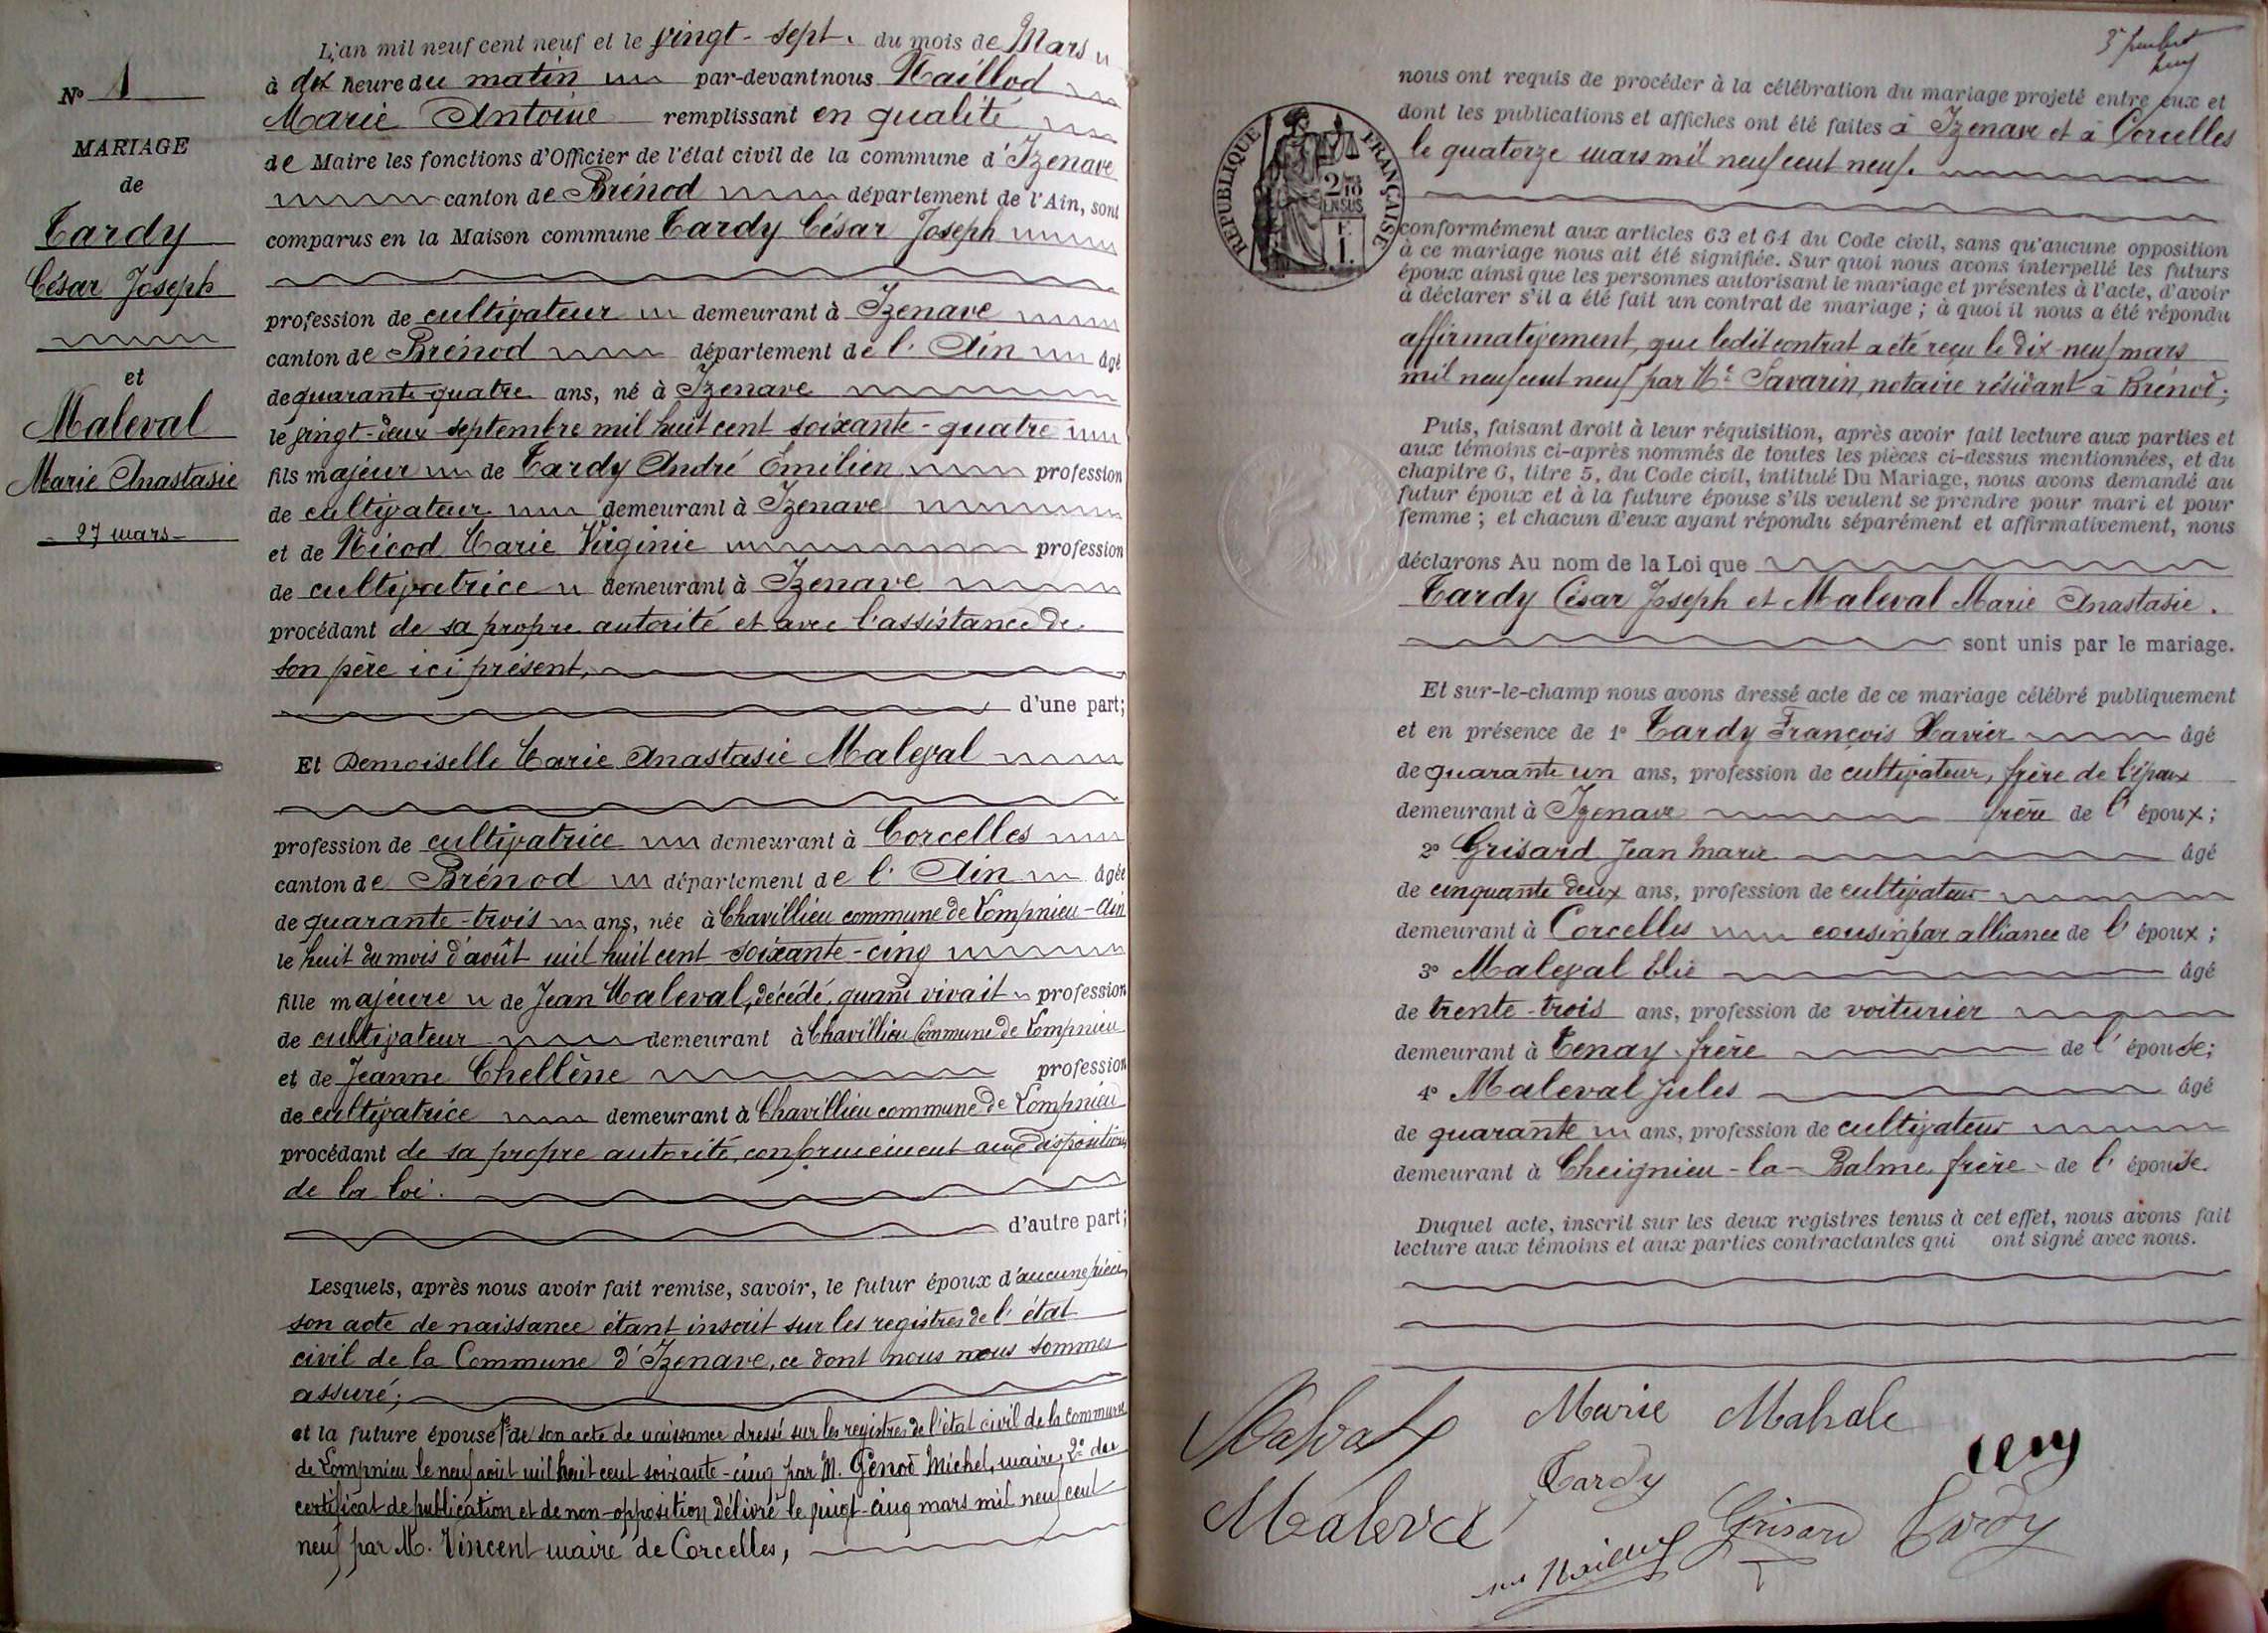 N° 1
MARIAGE
de
Tardy
César Joseph
et
Maleval
Marie Anastasie
27 mars
L'an mil neuf cent neuf et le vingt-sept. du mois de Mars
à dix heure du matin par-devant nous Maillod
Marie Antoine remplissant en qualité
de Maire les fonctions d'Officier de l'état civil de la commune d'Izenave
canton de Brénod département de l'Ain, sont
comparus en la Maison commune Tardy César Joseph
profession de cultivateur demeurant à Izenave
canton de Brénod département de l'Ain âgé
de quarante-quatre ans, né à Izenave
le vingt-deux septembre mil huit cent soixante-quatre
fils majeur de Tardy André Émilien profession
de cultivateur demeurant à Izenave
et de Nicod Marie Virginie profession
de cultivatrice demeurant à Izenave
procédant de sa propre autorité et avec l'assistance de
son père ici présent,
d'une part;
Et Demoiselle Marie Anastasie Maleval
profession de cultivatrice demeurant à Corcelles
canton de Brénod département de l'Ain âgée
de quarante-trois ans, née à Chavillieu commune de Lompnieu-Ain
le huit du mois d'août mil huit cent soixante-cinq
fille majeure de Jean Maleval, décédé, quand vivait profession
de cultivateur demeurant à Chavillieu Commune de Lompnieu
et de Jeanne Chellène profession
de cultivatrice demeurant à Chavillieu commune de Lompnieu
procédant de sa propre autorité, conformément aux dispositions
de la loi.
d'autre part;
Lesquels, après nous avoir fait remise, savoir, le futur époux d'aucune pièce,
son acte de naissance étant inscrit sur les registres de l'état
civil de la Commune d'Izenave, ce dont nous nous sommes
assuré;
et la future épouse 1° de son acte de naissance dressé sur les registres de l'état civil de la commune
de Lompnieu le neuf août mil huit cent soixante-cinq par M. Genod Michel, maire; 2° du
certificat de publication et de non-opposition délivré le vingt-cinq mars mil neuf cent
neuf par M. Vincent maire de Corcelles,
nous ont requis de procéder à la célébration du mariage projeté entre eux et
dont les publications et affiches ont été faites à Izenave et à Corcelles
le quatorze mars mil neuf cent neuf.
RÉPUBLIQUE FRANÇAISE
conformément aux articles 63 et 64 du Code civil, sans qu'aucune opposition
à ce mariage nous ait été signifiée. Sur quoi nous avons interpellé les futurs
époux ainsi que les personnes autorisant le mariage et présentes à l'acte, d'avoir
à déclarer s'il a été fait un contrat de mariage; à quoi il nous a été répondu
affirmativement, que ledit contrat a été reçu le dix-neuf mars
mil neuf cent neuf par Me Savarin, notaire résidant à Brénod;
Puis, faisant droit à leur réquisition, après avoir fait lecture aux parties et
aux témoins ci-après nommés de toutes les pièces ci-dessus mentionnées, et du
chapitre 6, titre 5, du Code civil, intitulé Du Mariage, nous avons demandé au
futur époux et à la future épouse s'ils veulent se prendre pour mari et pour
femme; et chacun d'eux ayant répondu séparément et affirmativement, nous
déclarons Au nom de la Loi que
Tardy César Joseph et Maleval Marie Anastasie.
sont unis par le mariage.
Et sur-le-champ nous avons dressé acte de ce mariage célébré publiquement
et en présence de 1° Tardy François Xavier âgé
de quarante un ans, profession de cultivateur, frère de l'époux
demeurant à Izenave frère de l'époux;
2° Grisard Jean Marie âgé
de cinquante deux ans, profession de cultivateur
demeurant à Corcelles cousin par alliance de l'époux;
3° Maleval Elie âgé
de trente-trois ans, profession de voiturier
demeurant à Tenay frère de l'épouse;
4° Maleval Jules âgé
de quarante ans, profession de cultivateur
demeurant à Cheignieu-la-Balme frère de l'épouse.
Duquel acte, inscrit sur les deux registres tenus à cet effet, nous avons fait
lecture aux témoins et aux parties contractantes qui ont signé avec nous.
Marie
Tardy
Grisard
Tardy